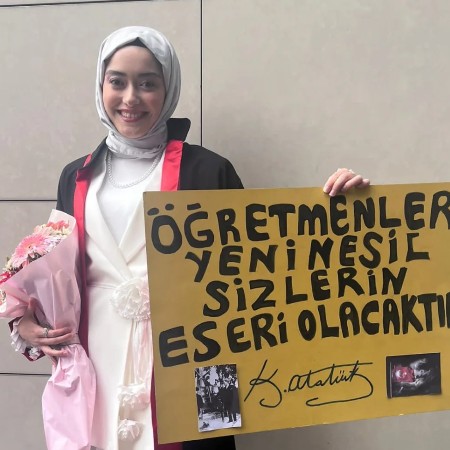 ÖĞRETMENLER
YENİ NESİL
SİZLERİN
ESERİ OLACAKTI
K. Atatürk